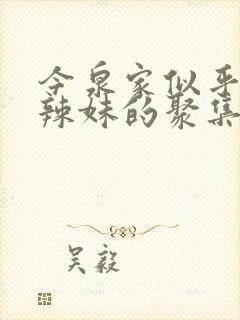 今泉家似乎
辣妹的聚集
吴毅